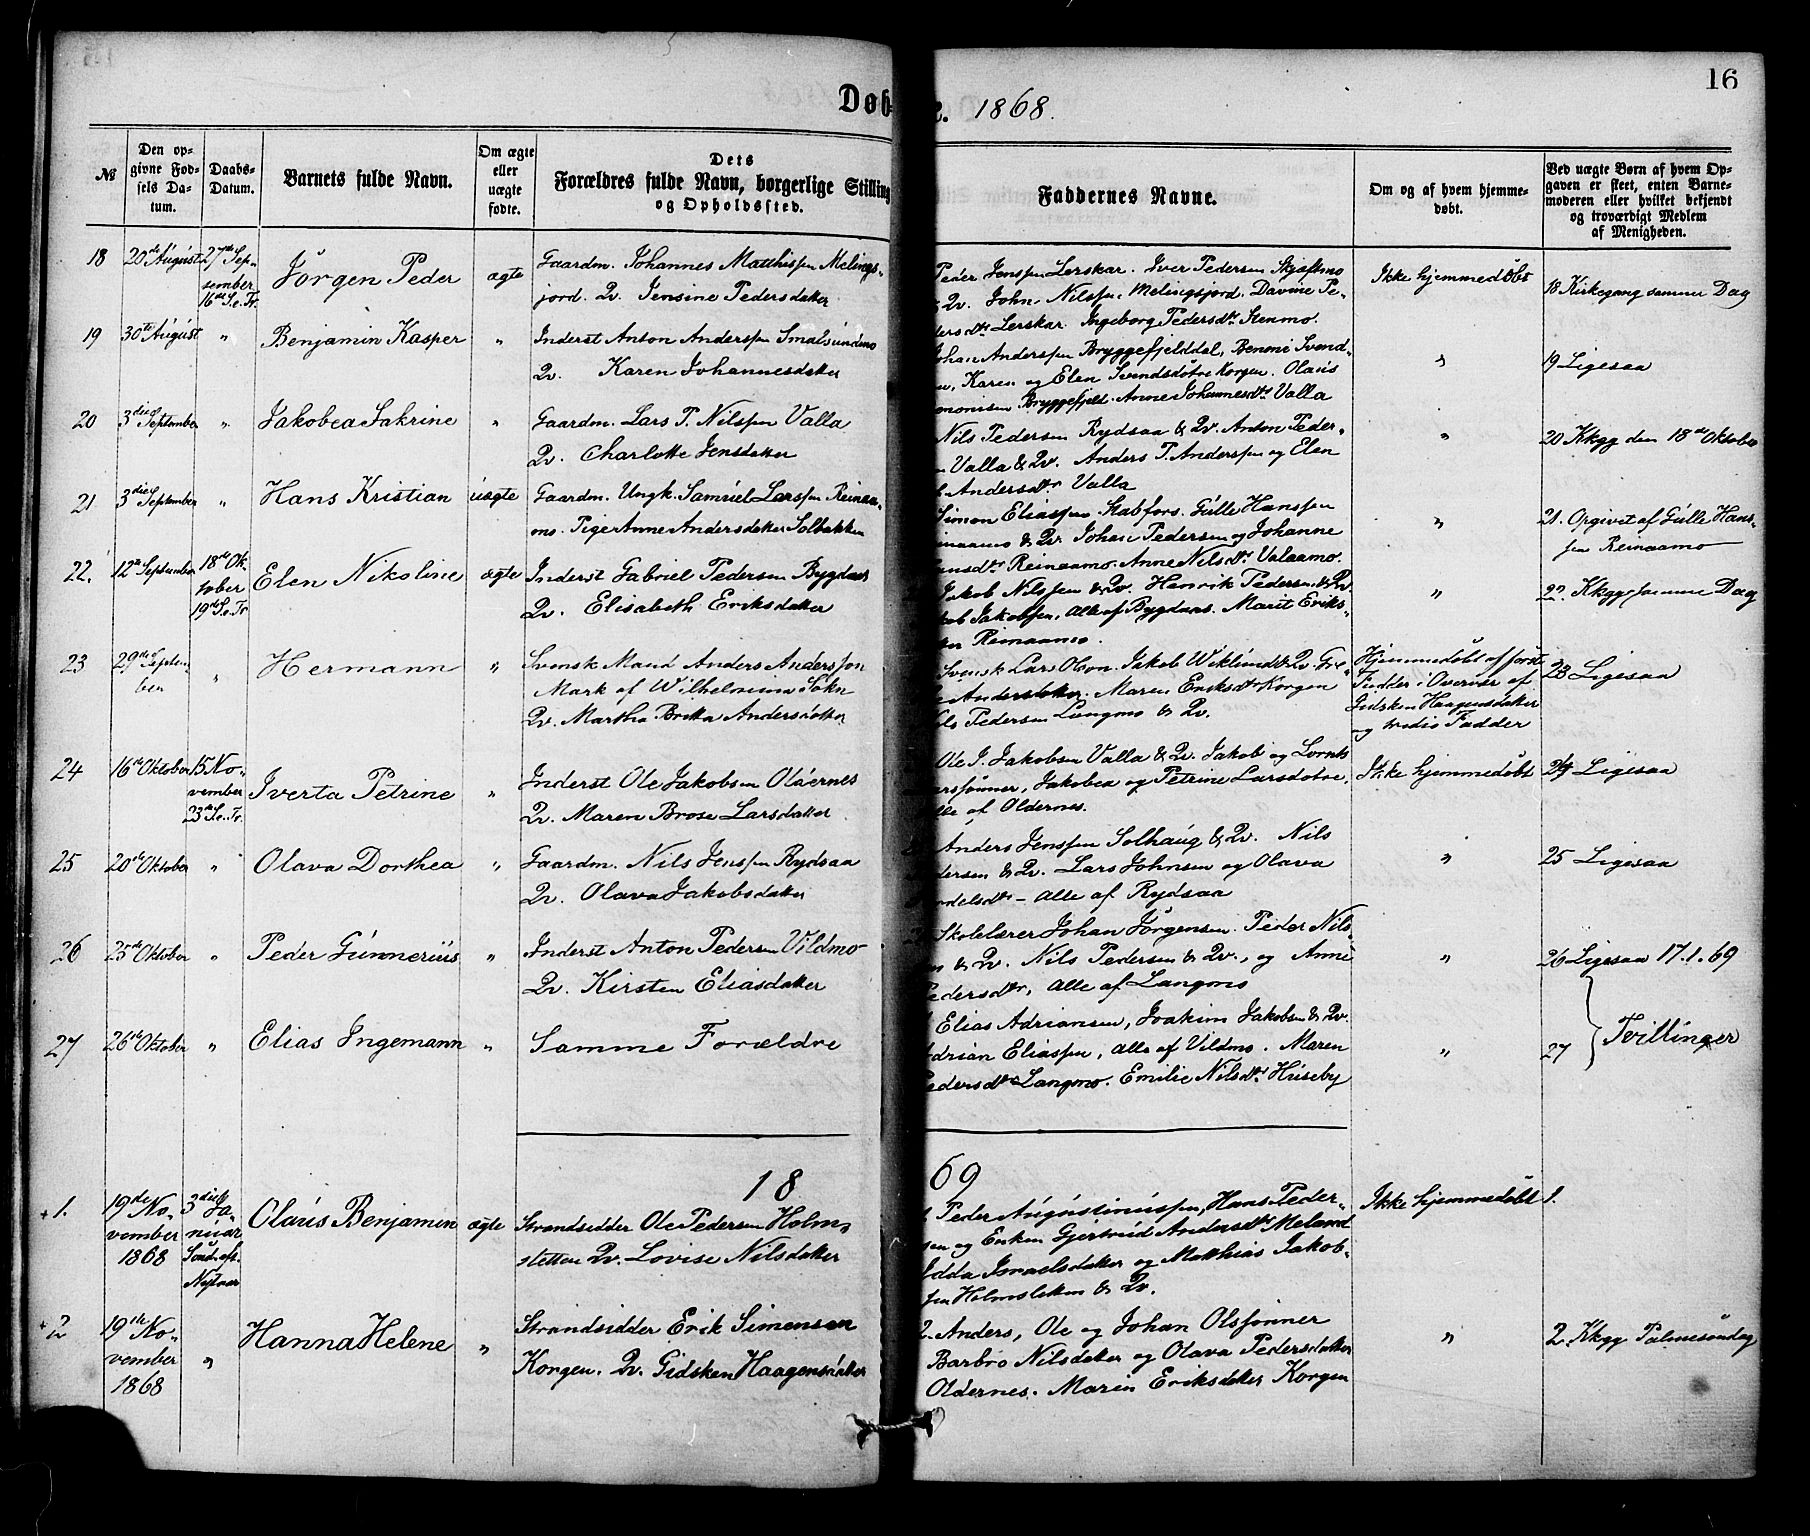 16
Døb-
e. 1868.
№
Den op-
givne Fød-
sels Da-
tum.
Daabs-
Datum.
Barnets fulde Navn.
Om ægte
eller
uægte
fødte.
Dets
Forældres fulde Navn, borgerlige Stilling
og Opholdssted.
Faddernes Navne.
Om og af hvem hjemme-
døbt.
Ved uægte Børn af hvem Op-
gaven er skeet, enten Barne-
moderen eller hvilket bekjendt
og troværdigt Medlem
af Menigheden.
18
20de August
27de Sep-
tember
16de S.e.Tr.
Jørgen Peder
ægte
Gaardm. Johannes Matthisen Melings-
jord. Qv. Jensine Pedersdatter
Peder Jenssen Lerskar. Iver Pedersen Skjaftmo
& Qv. John Nilssen Melingsjord. Davine Pe-
dersdtr Lerskar. Ingeborg Pedersdtr Stenmo.
Ikke hjemmedøbt
18 Kirkegang samme Dag
19
30te August
"
Benjamin Kasper
"
Inderst Anton Anderssen Smalsundmo
Qv. Karen Johannesdatter
Johan Anderssen Bryggefjelddal, Benoni Svend-
Karen og Elen Svendsdøtre Korgen. Olaus
Bryggefjeld. Anne Johannesdtr Valla
"
19 Ligesaa
20
3die September
"
Jakobea Sakrine
"
Gaardm. Lars P. Nilssen Valla
Qv. Charlotte Jensdatter
Nils Pedersen Rydsaa & Qv. Anton Peder-
Valla & Qv. Anders P. Anderssen og Elen
Andersdtr Valla
"
20 Kkgg den 18de Oktober
21
3die September
"
Hans Kristian
uægte
Gaardm. Ungk. Samuel Larssen Reinaa-
mo. Pige Anne Andersdatter Solbakken
Simon Eliassen Stabfors. Gulle Hanssen
Reinaamo & Qv. Johan Pedersen og Johanne
Hansdtr Reinaamo. Anne Nilsdtr Valaamo.
"
21. Opgivet af Gulle Hans-
sen Reinaamo
22.
12te September
18de Ok-
tober
19de S.e.Tr.
Elen Nikoline
ægte
Inderst Gabriel Pedersen Bygdaas
Qv. Elisabeth Eriksdatter
Jakob Nilssen & Qv. Henrik Pedersen & Qv.
Jakobsen, Alle af Bygdaas. Marit Eriks-
Reinaamo.
"
22 Kkgg samme Dag
23
29de Septem-
ber
"
Hermann
"
Svensk Mand Anders Andersson
Mark af Wilhelmina Sokn
Qv. Martha Britta Andersdotter
Svensk Lars Olson. Jakob Wiklund & Qv.
Andersdotter. Maren Eriksdtr Korgen
Pedersen Langmo & Qv.
Hjemmedøbt af først
Fadder i Overvær af
Gidsken Haagensdatter
og tredie Fadder
23 Ligesaa
24
16de Oktober
15 No-
vember
23de S.e.Tr.
Iverta Petrine
"
Inderst Ole Jakobsen Oldernes
Qv. Maren Brose Larsdatter
Ole J. Jakobsen Valla & Qv. Jakob og Lornts
Larssønner, Jakobea og Petrine Larsdøtre,
Alle af Oldernes.
Ikke hjemmedøbt
24 Ligesaa
25
20de Oktober
"
Olava Dorthea
"
Gaardm. Nils Jenssen Rydsaa
Qv. Olava Jakobsdatter
Anders Jenssen Solhaug & Qv. Nils
Pedersen & Qv. Lars Johnsen og Olava
– Alle af Rydsaa
"
25 Ligesaa
26
25de Oktober
"
Peder Gunnerius
"
Inderst Anton Pedersen Vildmo
Qv. Kirsten Eliasdatter
Skolelærer Johan Jørgensen. Peder Nils-
sen & Qv. Nils Pedersen & Qv., og Anne
Pedersdtr, Alle af Langmo
"
26 Ligesaa 17.1.69
27
26de Oktober
"
Elias Ingemann
"
Samme Forældre
Elias Adriansen, Joakim Jakobsen & Qv.
Adrian Eliassen, Alle af Vildmo. Maren
Pedersdtr Langmo. Emilie Nilsdtr Huseby
"
27
Tvillinger
1869
+1.
19de No-
vember
1868
3die Ja-
nuar
Sønd. eft.
Nytaar
Olaus Benjamin
ægte
Strandsidder Ole Pedersen Holm-
sletten Qv. Lovise Nilsdatter
Peder Augustinussen, Hans Peder-
sen og Enken Gjertrud Andersdtr Meland
Edda Israelsdatter og Matthias Jakob-
sen Holmsletten & Qv.
Ikke hjemmedøbt
1.
+2
19de No-
vember
1868
"
Hanna Helene
"
Strandsidder Erik Simensen
Korgen. Qv. Gidsken Haagensdatter
2. Anders, Ole og Johan Olsønner
Barbro Nilsdatter og Olava Pedersdatter
Oldernes. Maren Eriksdatter Korgen
"
2. Kkgg Palmesøndag